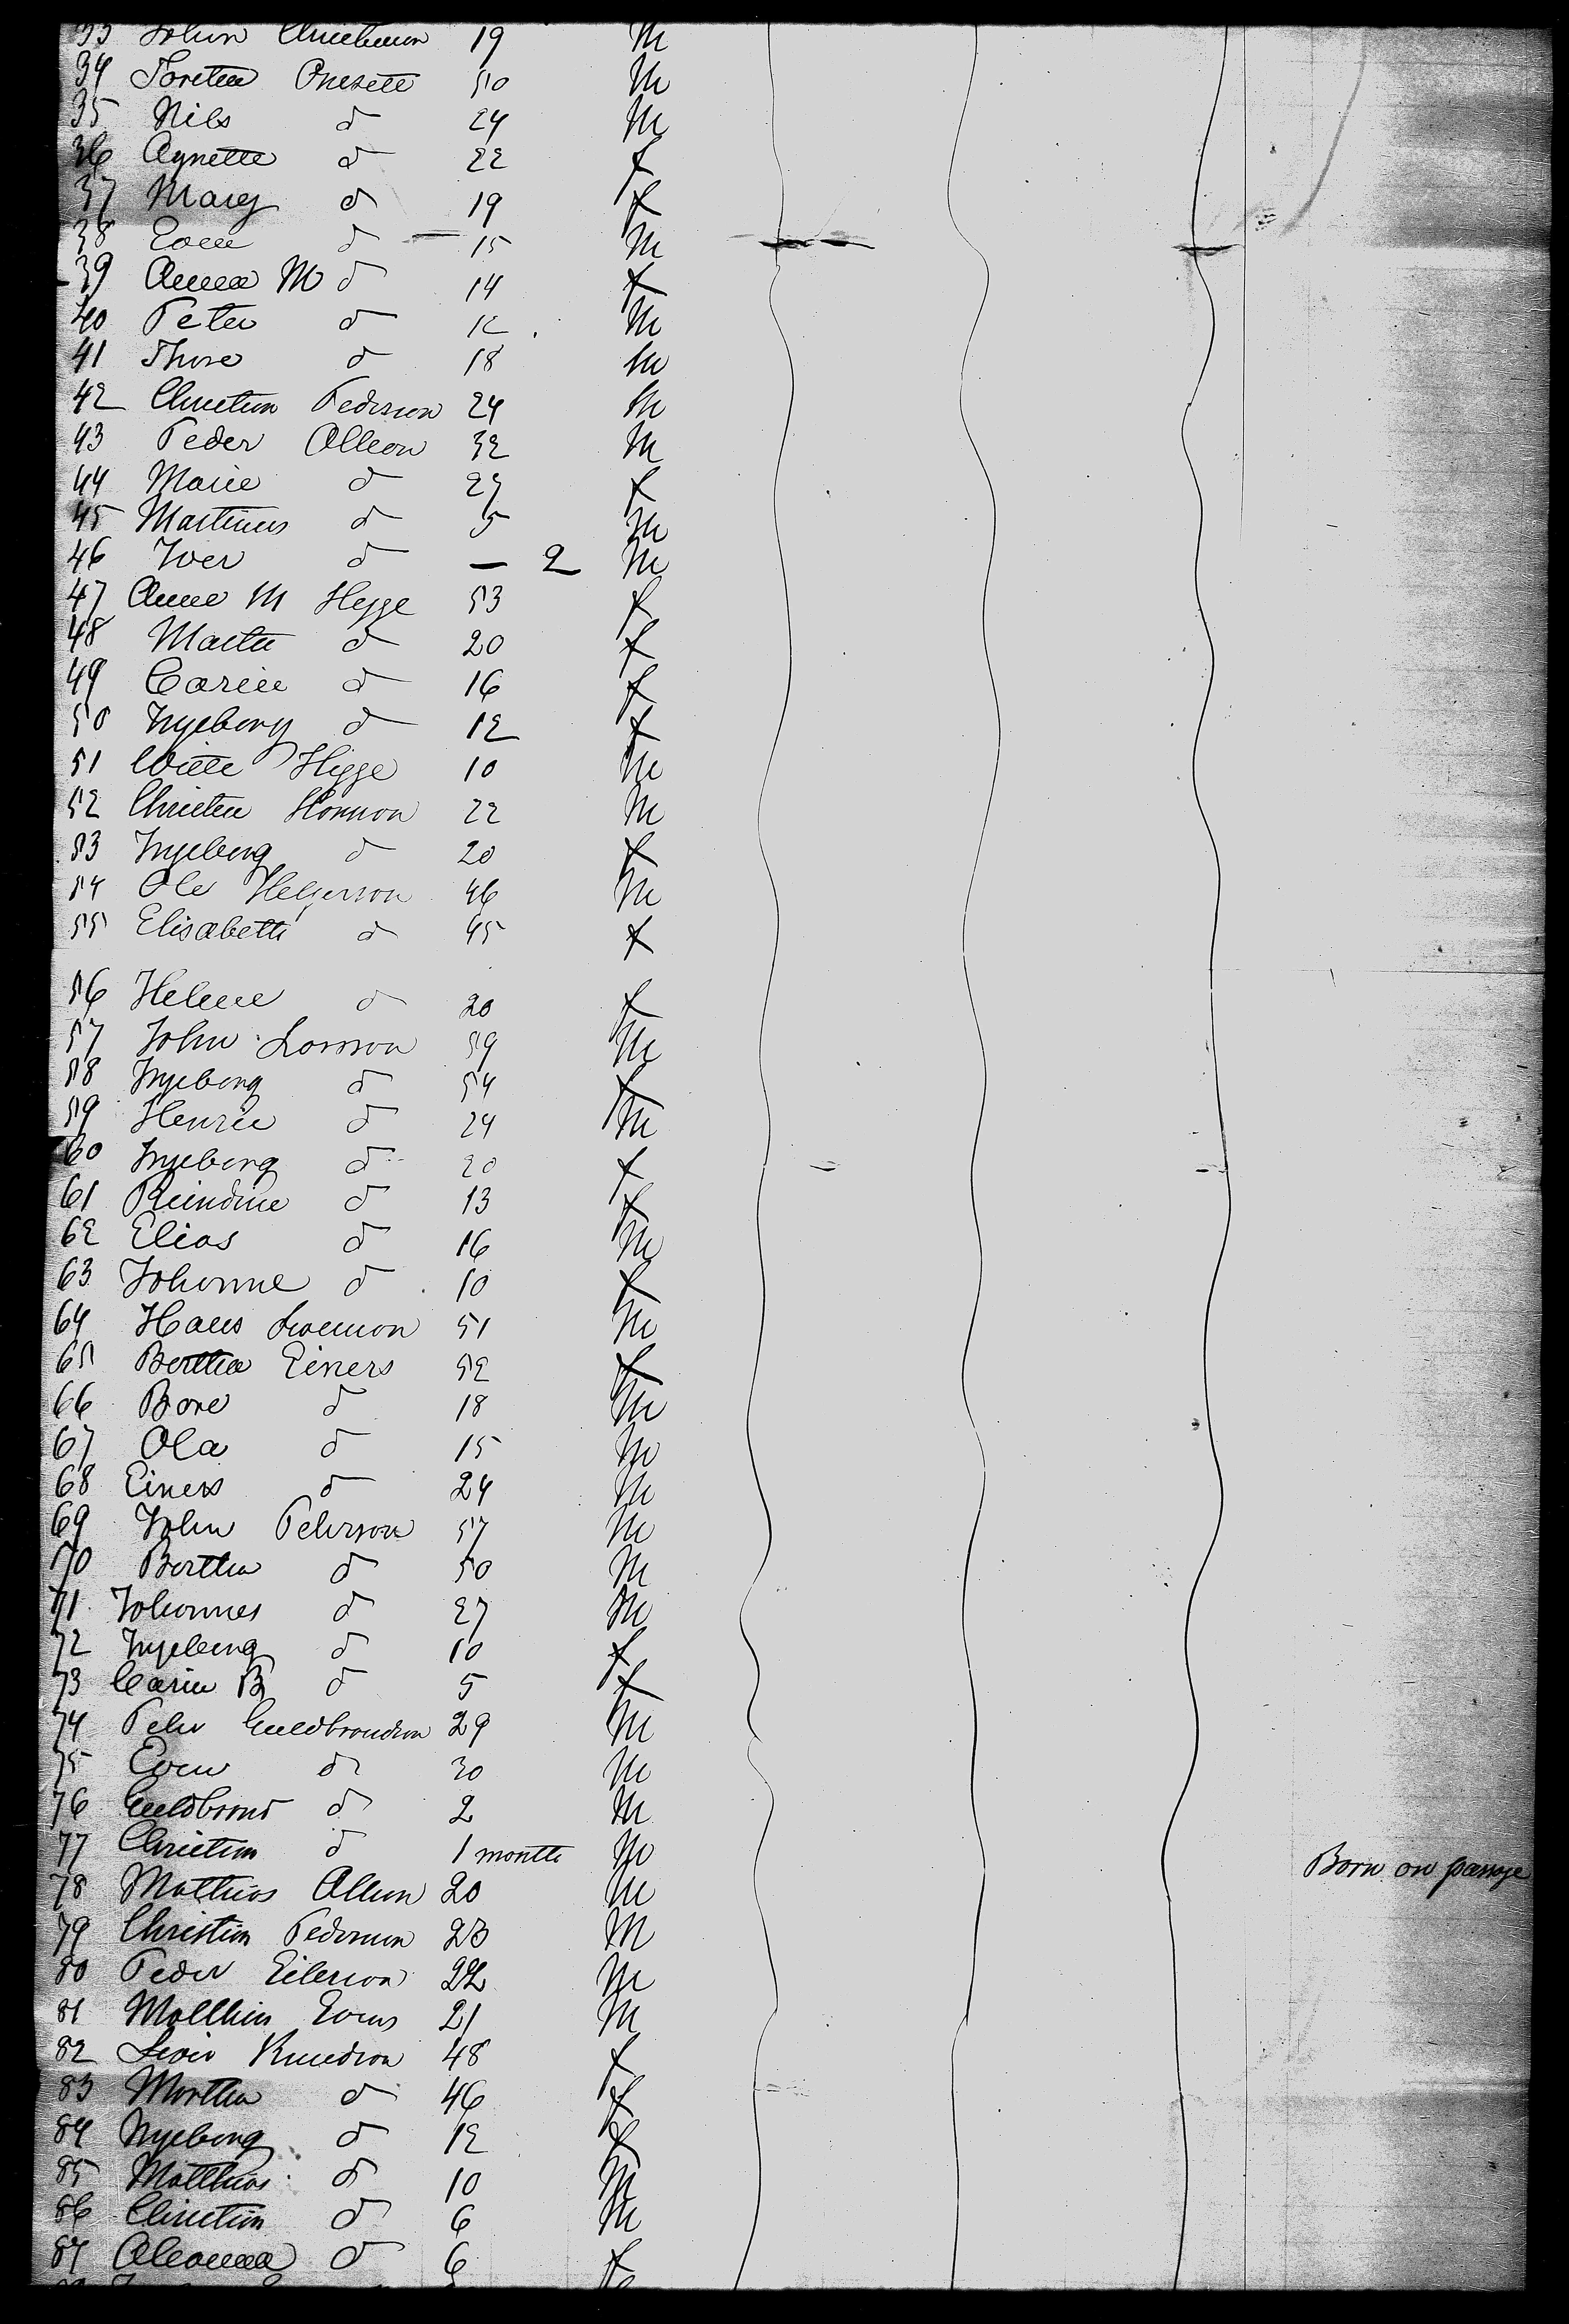 33 Johan Christianson 19 M
34 Torsten Onesett 50 M
35 Nils d 24 M
36 Agnette d 22 f
37 Mary d 19 f
38 Even d 15 M
39 Anna M d 14 f
40 Peter d 12 M
41 Thore d 18 M
42 Christian Pederson 24 M
43 Peder Olleson 32 M
44 Marie d 27 f
45 Martinus d 5 M
46 Iver d — 2 M
47 Anne M Hegge 53 f
48 Marte d 20 f
49 Carine d 16 f
50 Ingeborg d 12 f
51 Hegge 10 M
52 Christen 22 M
53 Ingeborg d 20 f
54 Ole Helgerson 46 M
55 Elisabeth d 45 f
56 Helene d 20 f
57 John Larsson 59 M
58 Ingeborg d 54 f
59 Henric d 24 M
60 Ingeborg d 20 f
61 Reindine d 13 f
62 Elias d 16 M
63 Johanne d 10 f
64 Hans 51 M
65 Berthe Einers 52 f
66 Bore d 18 M
67 Ola d 15 M
68 Einers d 24 M
69 John Peterson 57 M
70 Berthe d 50 M
71 Johannes d 27 M
72 Ingeborg d 10 f
73 Carin B d 5 f
74 Peter Guldbrandson 29 M
75 Even d 30 M
76 Guldbrand d 2 M
77 Christian d 1 month M Born on passage
78 Mathias Olsen 20 M
79 Christian Pederson 23 M
80 Peder Eilerson 22 M
81 Matthias Evens 21 M
82 Knudson 48 f
83 Martha d 46 f
84 Ingeborg d 12 f
85 Matthias d 10 M
86 Christian d 6 M
87 d 6 f